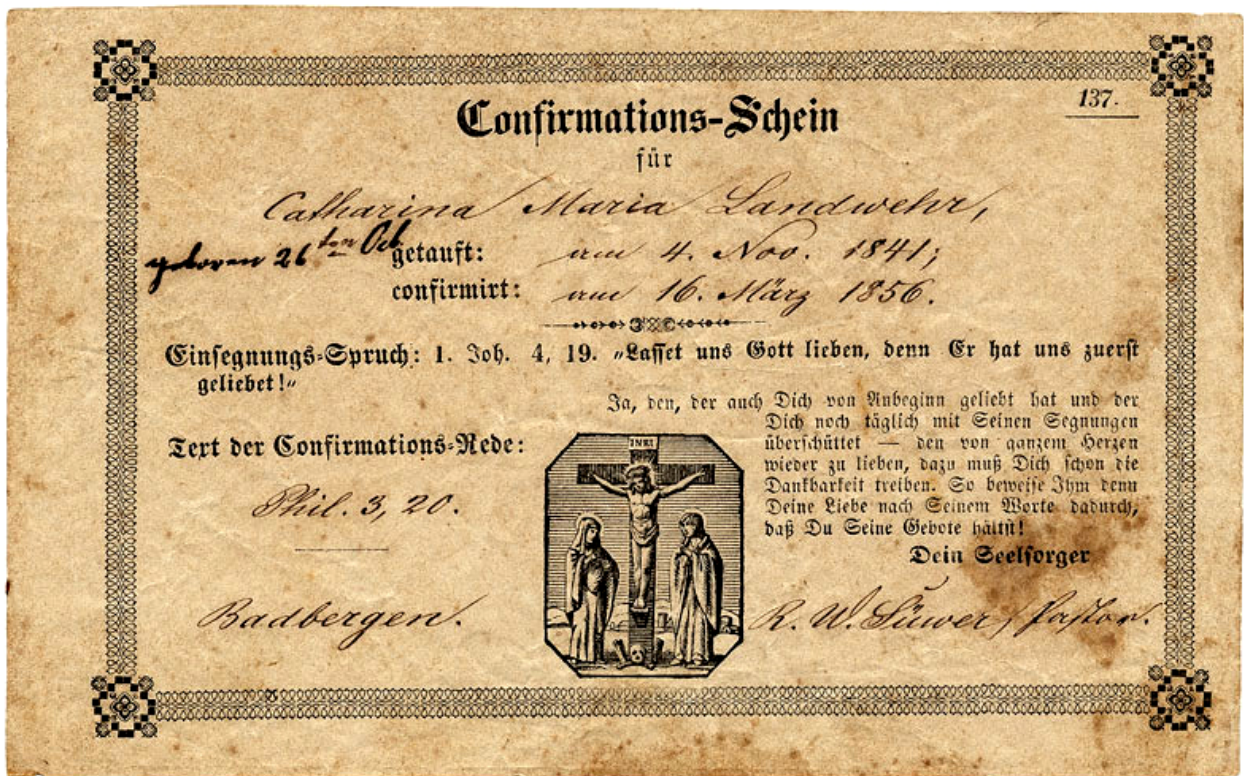 137.
Confirmations-Schein
für
Catharina Maria Landwehr,
geboren 26ten Oct. getauft: am 4. Nov. 1841;
confirmirt: am 16. März 1856.
Einsegnungs-Spruch: 1. Joh. 4, 19. „Lasset uns Gott lieben, denn Er hat uns zuerst
geliebet!"
Ja, den, der auch Dich von Anbeginn geliebt hat und der
Dich noch täglich mit Seinen Segnungen
überschüttet — den von ganzem Herzen
wieder zu lieben, dazu muß Dich schon die
Dankbarkeit treiben. So beweise Ihm denn
Deine Liebe nach Seinem Worte dadurch,
daß Du Seine Gebote hältst!
Text der Confirmations-Rede:
INRI
Phil. 3, 20.
Dein Seelsorger
Badbergen.
R. W. Lüwer, Pastor.